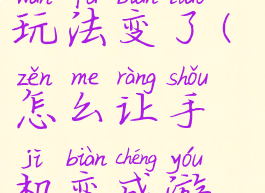 wán fǎ biàn
玩法变了(
zěn me ràng shǒu
怎么让手
jī biàn chéng yóu
机变成游